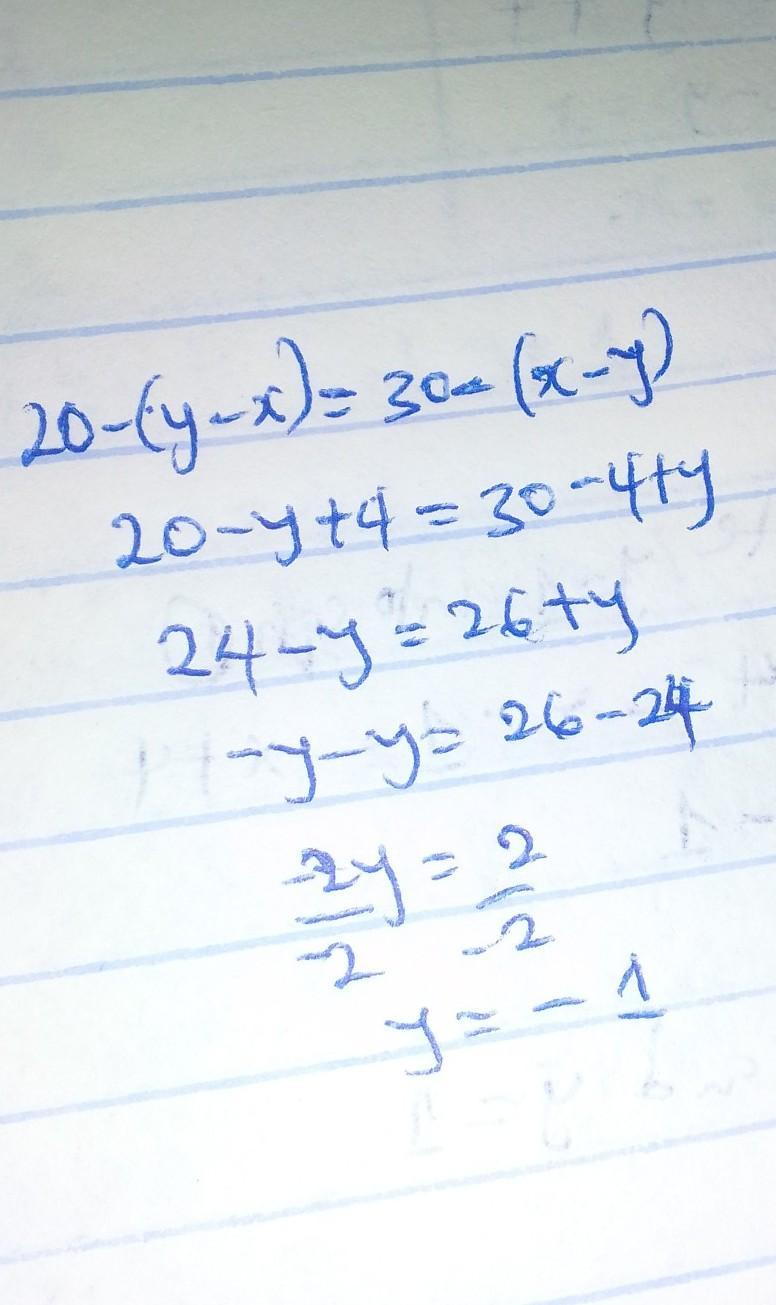 20-(y-x)= 30-(x-y)
20-y+4=30-4+y
24-y=26+y
-y-y= 26-24
-2y = 2
-2 -2
y = - 1